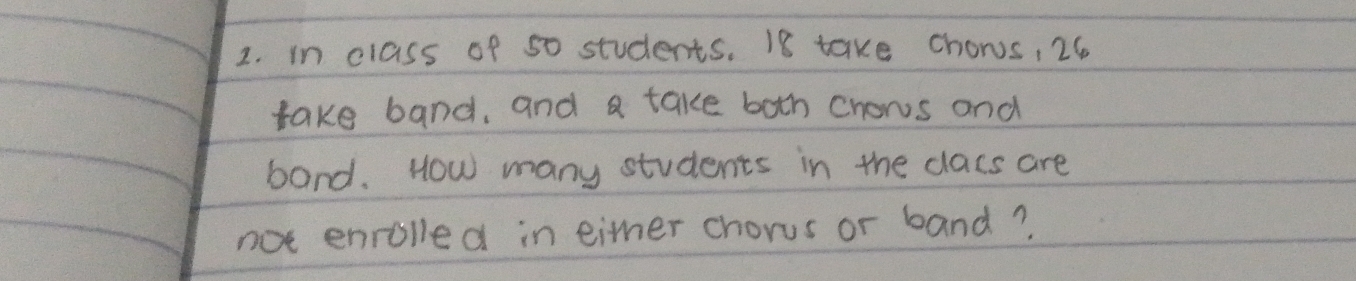 1. in class of 50 students. 18 take chorus, 26
take band, and 2 take both chorus and
band. How many students in the class are
not enrolled in either chorus or band?